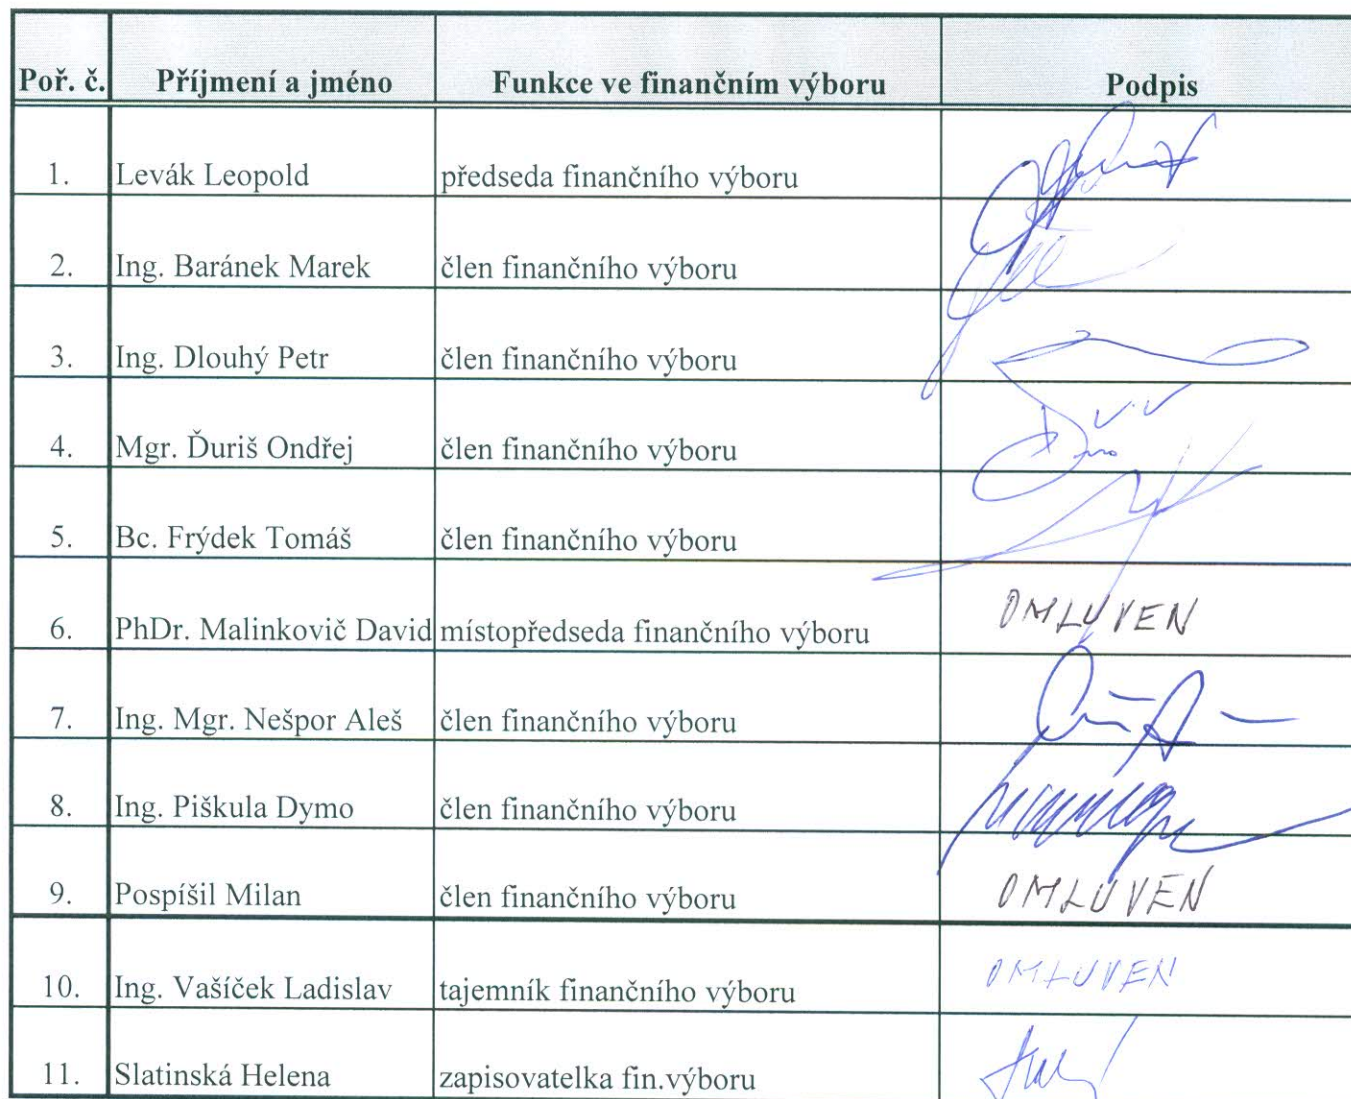 Poř. č. Příjmení a jméno Funkce ve finančním výboru Podpis
1. Levák Leopold předseda finančního výboru
2. Ing. Baránek Marek člen finančního výboru
3. Ing. Dlouhý Petr člen finančního výboru
4. Mgr. Ďuriš Ondřej člen finančního výboru
5. Bc. Frýdek Tomáš člen finančního výboru
6. PhDr. Malinkovič David místopředseda finančního výboru OMLUVEN
7. Ing. Mgr. Nešpor Aleš člen finančního výboru
8. Ing. Piškula Dymo člen finančního výboru
9. Pospíšil Milan člen finančního výboru OMLUVEN
10. Ing. Vašíček Ladislav tajemník finančního výboru OMLUVEN
11. Slatinská Helena zapisovatelka fin.výboru